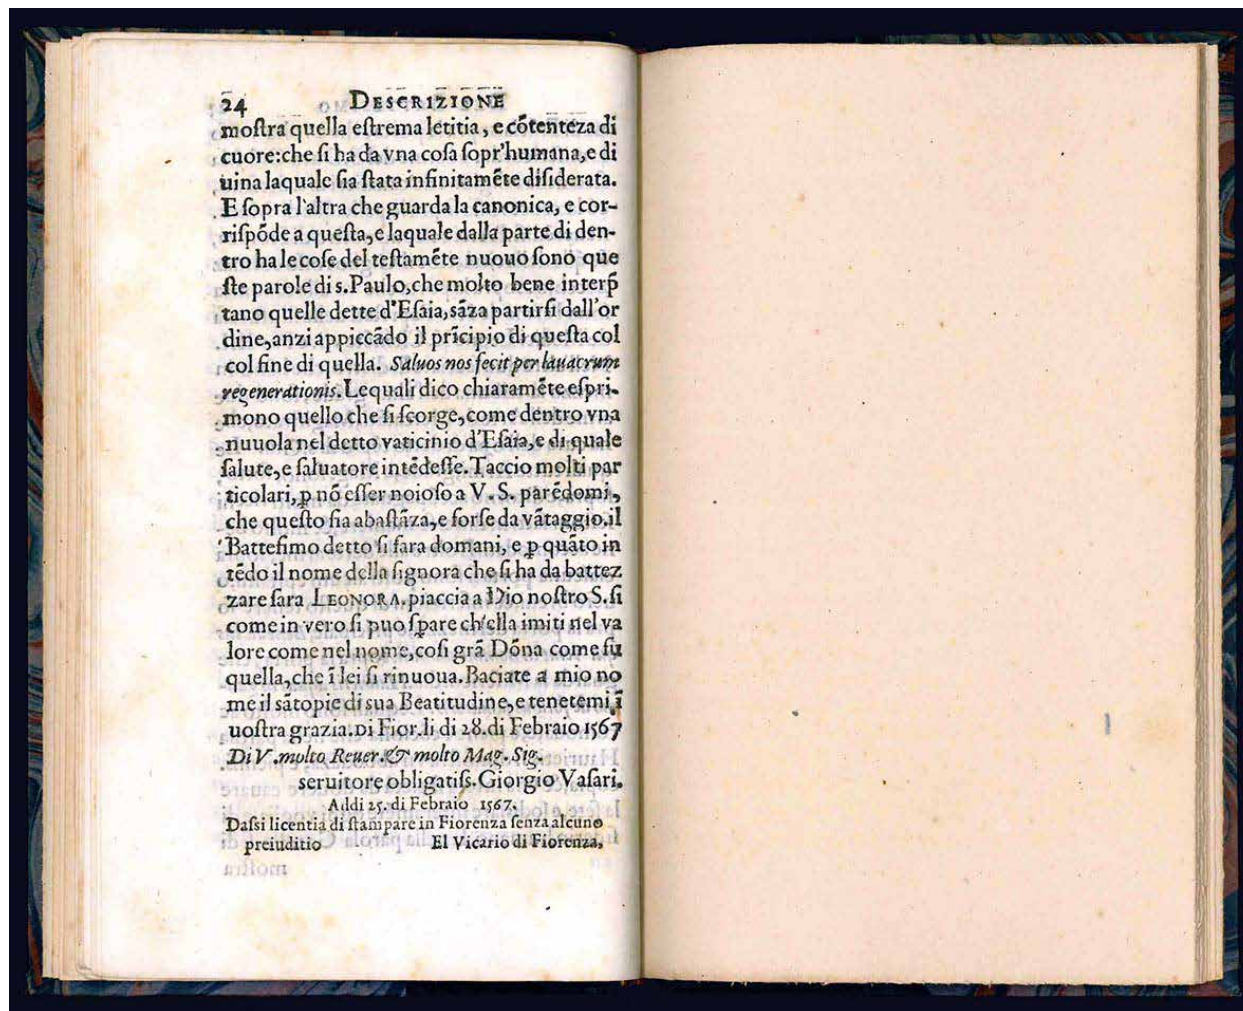 24 DESCRIZIONE
mostra quella estrema letitia, e cõtenteza di
cuore: che si ha da vna cosa sopr'humana, e di
uina laquale sia stata infinitamẽte disiderata.
E sopra l'altra che guarda la canonica, e cor-
rispõde a questa, e laquale dalla parte di den-
tro ha le cose del testamẽte nuouo sono que
ste parole di s. Paulo, che molto bene interp̃
tano quelle dette d'Esaia, sãza partirsi dall'or
dine, anzi appiccãdo il prĩcipio di questa col
col fine di quella. Saluos nos fecit per lauacrum
regenerationis. Lequali dico chiaramẽte espri-
mono quello che si scorge, come dentro vna
nuuola nel detto vaticinio d'Esaia, e di quale
salute, e saluatore intẽdesse. Taccio molti par
ticolari, ꝑ nõ esser noioso a V. S. parẽdomi,
che questo sia abastãza, e forse da vãtaggio. il
Battesimo detto si fara domani, e ꝑ quãto in
tẽdo il nome della signora che si ha da battez
zare sara LEONORA. piaccia a Dio nostro S. si
come in vero si puo sꝑare ch'ella imiti nel va
lore come nel nome, cosi grã Dõna come fu
quella, che ĩ lei si rinuoua. Baciate a mio no
me il sãtopie di sua Beatitudine, e tenetemi ĩ
uostra grazia. DI Fior. li di 28. di Febraio 1567
Di V. molto Reuer. & molto Mag. Sig.
seruitore obligatiss. Giorgio Vasari.
Addi 25. di Febraio 1567.
Dassi licentia di stampare in Fiorenza senza alcuno
preiuditio El Vicario di Fiorenza,